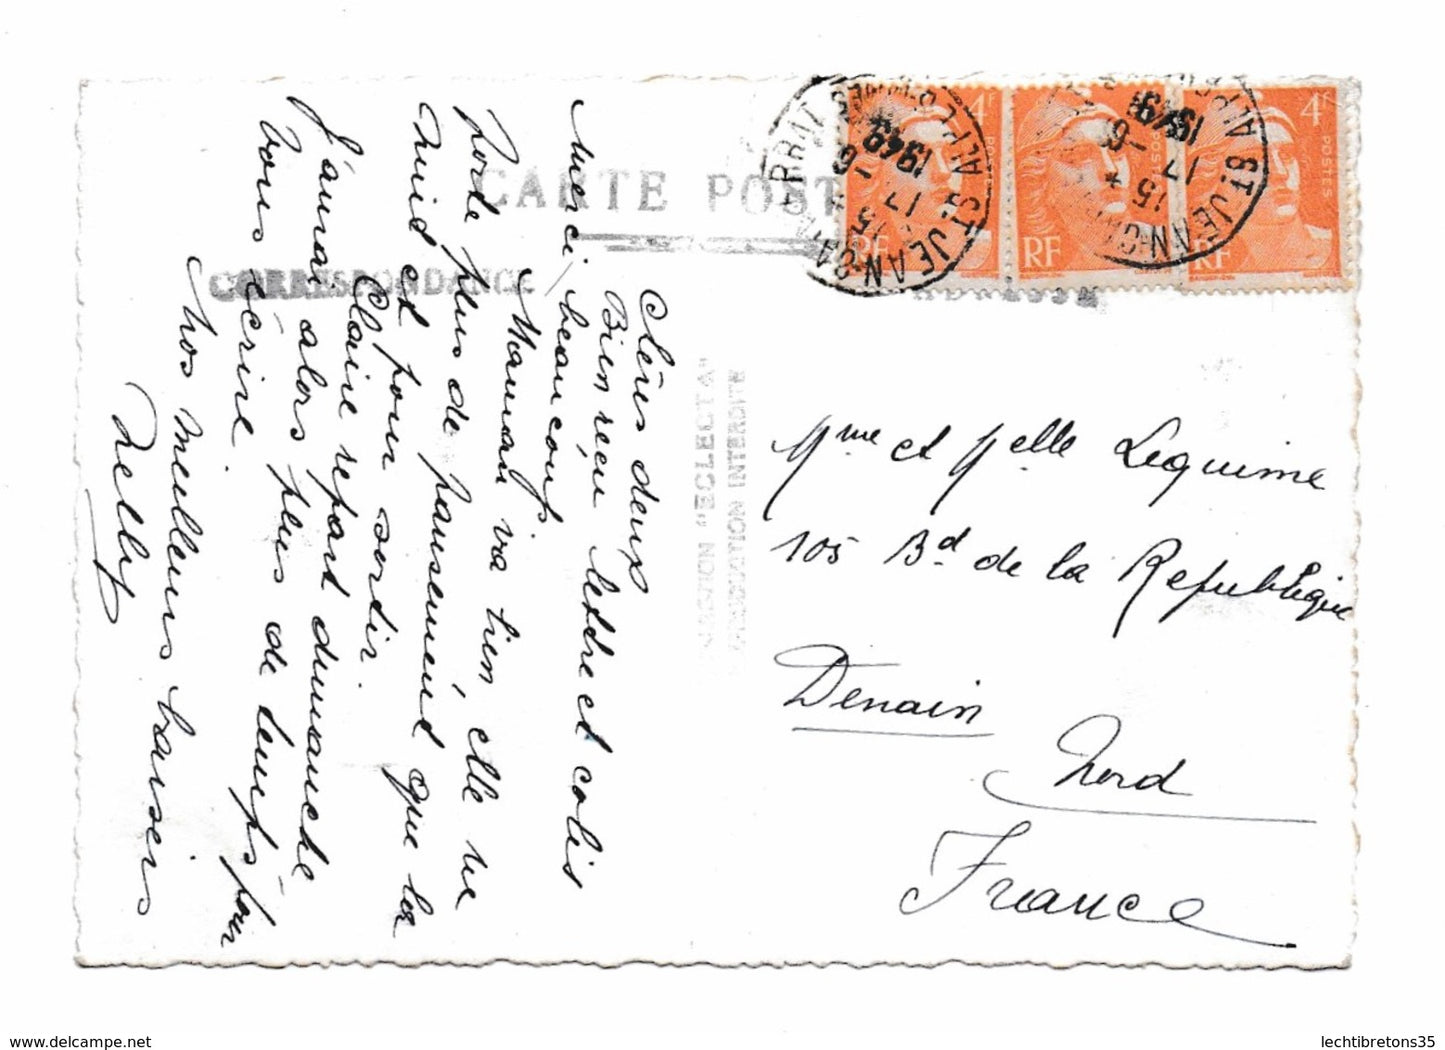 CARTE POST
CORRESPONDANCE
Chères deux
Bien reçu lettre et colis
Merci beaucoup
Maman va bien, elle ne
porte plus de pansement que la
nuid et pour sortir
Claire repart dimanche
J'aurai alors plus de temps pour
vous écrire
Nos meilleurs baisers
Nelly
"ECLECTA"
INTERDITE
4F
POSTES
RF
4F
POSTES
RF
RF
ST JEAN-CA
ALPES-MMES
15
17 - 6
1949
ST JEAN
15 *
17 - 6
1949
ADRESSE
Mme et Melle Lequime
105 Bd de la Republique
Denain
Nord
France
www.delcampe.net
lechtibretons35